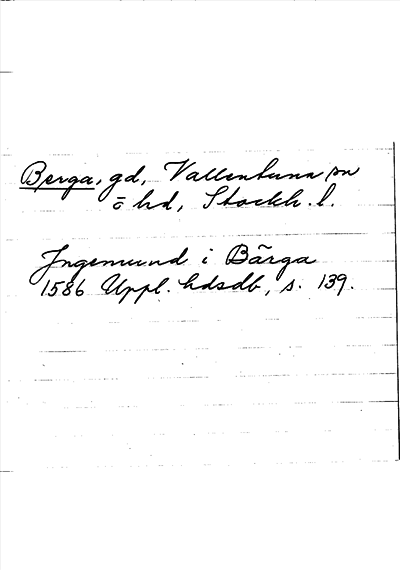 Berga, gd, Vallentuna sn
o hd, Stockh. l.
Ingemund i Bärga
1586 Uppl. hdsdb, s. 139.